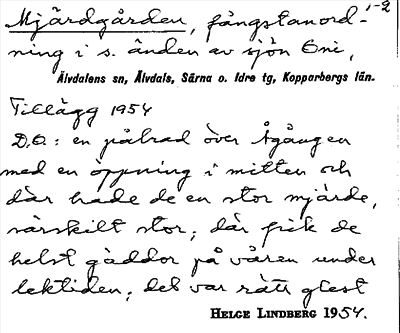 1-2
Mjärdgården, fångstanord-
ning i s. änden av sjön Eni,
Älvdalens sn, Älvdals, Särna o. Idre tg, Kopparbergs län.
Tillägg 1954
D.O.: en pålrad över Ågången
med en öppning i mitten och
där hade de en stor mjärde,
särskilt stor; där fick de
helst gäddor på våren under
lektiden; det var rätt glest
HELGE LINDBERG 1954.